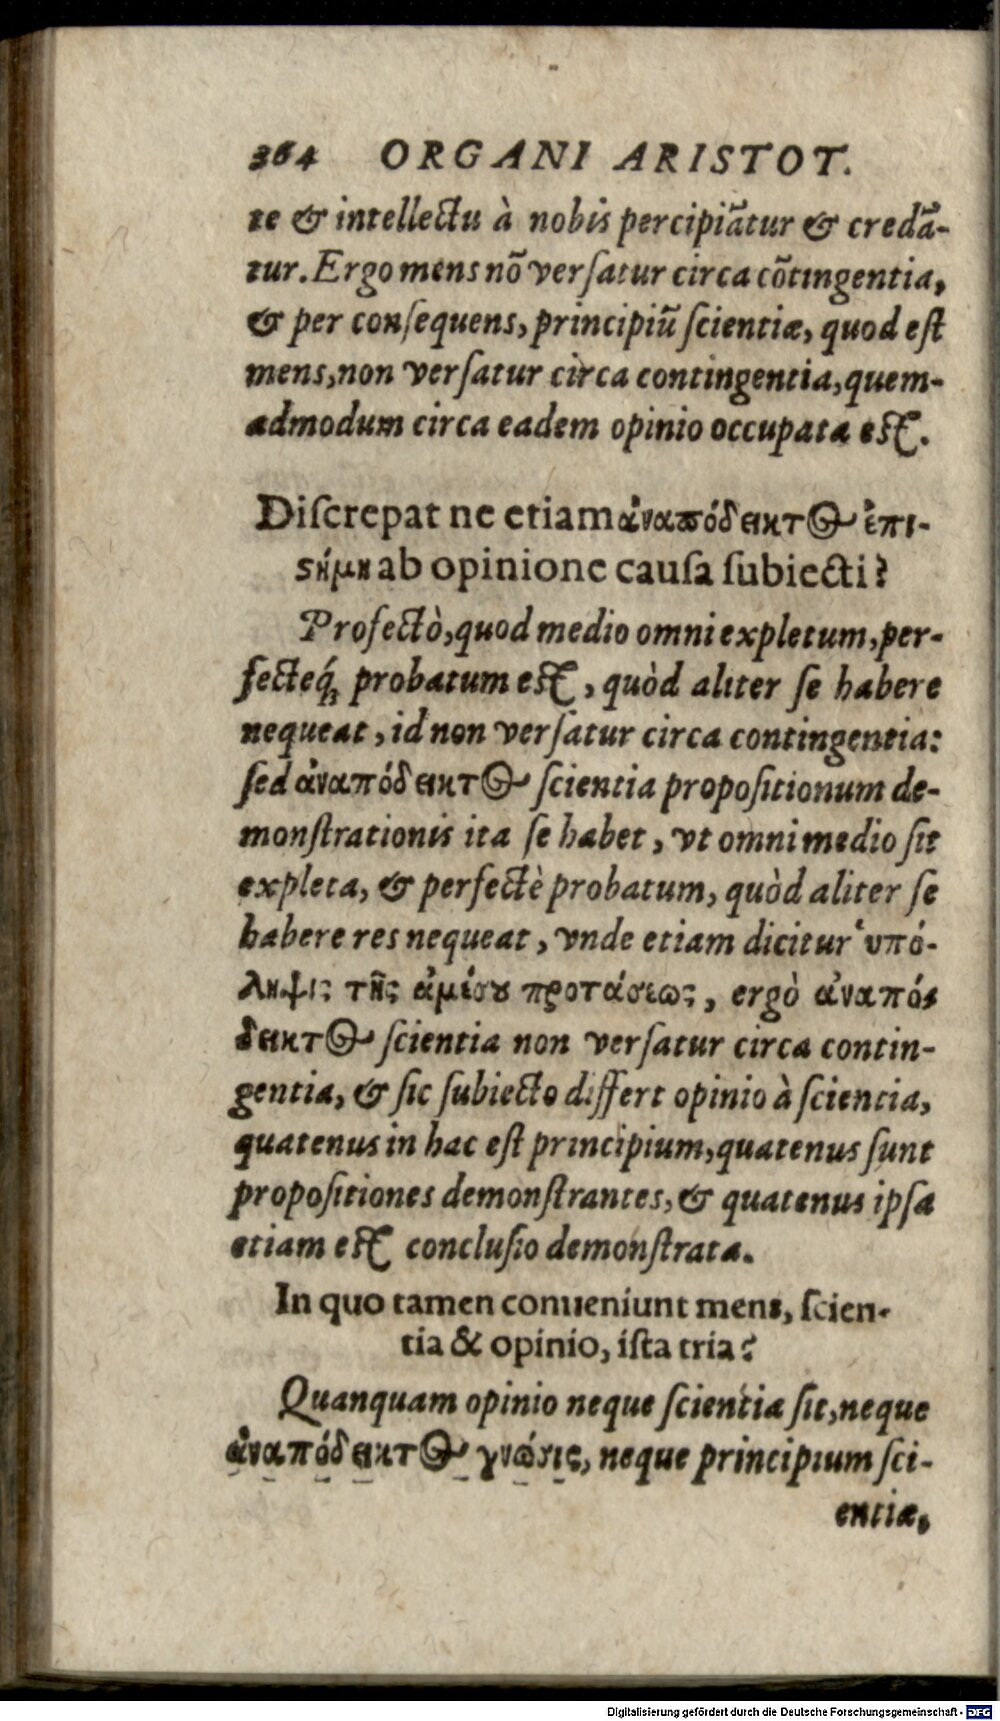 364 ORGANI ARISTOT.
te & intellectu à nobis percipiãtur & credã-
tur. Ergo mens nõ verſatur circa cõtingentia,
& per conſequens, principiũ ſcientiæ, quod eſt
mens, non verſatur circa contingentia, quem-
admodum circa eadem opinio occupata eſt.
Diſcrepat ne etiam ἀναπόδεικτος ἐπι-
ϛήμη ab opinione cauſa ſubiecti?
Profectò, quod medio omni expletum, per-
fecteq́ꝫ probatum eſt, quòd aliter ſe habere
nequeat, id non verſatur circa contingentia:
ſed ἀναπόδεικτος ſcientia propoſitionum de-
monſtrationis ita ſe habet, vt omni medio ſit
expleta, & perfectè probatum, quòd aliter ſe
habere res nequeat, vnde etiam dicitur ὑπό-
ληψις τῆς ἀμέσου προτάσεως, ergò ἀναπό-
δεικτος ſcientia non verſatur circa contin-
gentia, & ſic ſubiecto differt opinio à ſcientia,
quatenus in hac eſt principium, quatenus ſunt
propoſitiones demonſtrantes, & quatenus ipſa
etiam eſt concluſio demonſtrata.
In quo tamen conueniunt mens, ſcien-
tia & opinio, iſta tria?
Quanquam opinio neque ſcientia ſit, neque
ἀναπόδεικτος γνῶσις, neque principium ſci-
entiæ,
Digitalisierung gefördert durch die Deutsche Forschungsgemeinschaft - DFG